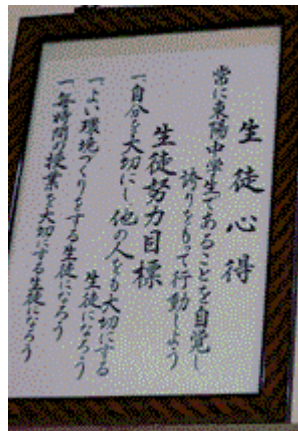 生徒心得
常に東陽中学生であることを自覚し
誇りをもって行動しよう
生徒努力目標
一、自分を大切にし他の人をも大切にする
生徒になろう
一、よい環境づくりをする生徒になろう
一、毎時間の授業を大切にする生徒になろう